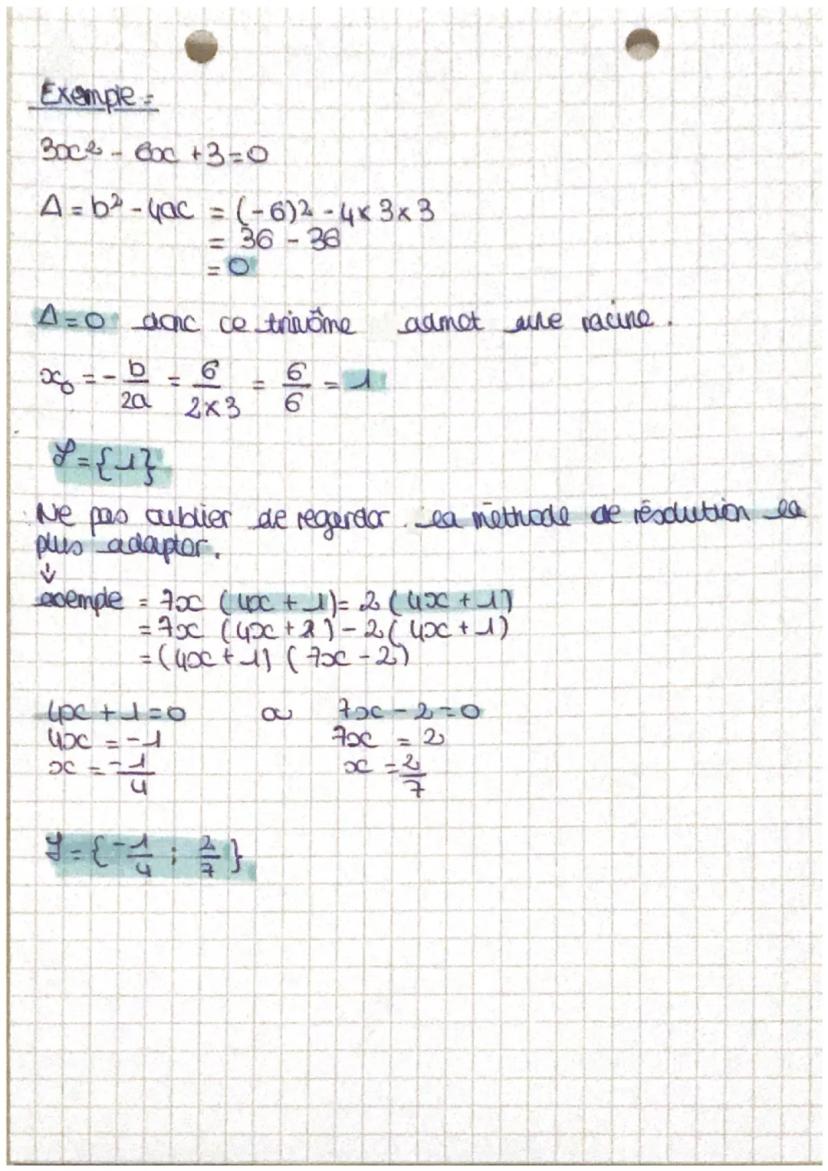 Exemple :
3x² - 6x + 3 = 0
Δ = b² - 4ac = (-6)² - 4 × 3 × 3
= 36 - 36
= 0
Δ = 0 donc ce trinôme admet une racine.
x₀ = - b/2a = 6/2×3 = 6/6 = 1
S = {1}
Ne pas oublier de regarder la méthode de résolution la
plus adapter.
↓
exemple = 7x (4x + 1) = 2 (4x + 1)
= 7x (4x + 1) - 2 (4x + 1)
= (4x + 1) (7x - 2)
4x + 1 = 0 ou 7x - 2 = 0
4x = -1 7x = 2
x = -1/4 x = 2/7
S = {-1/4 ; 2/7}